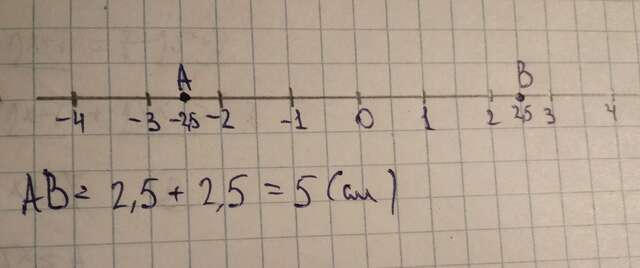 A B
-4 -3 -2,5 -2 -1 0 1 2 2,5 3 4
AB = 2,5 + 2,5 = 5 (см)